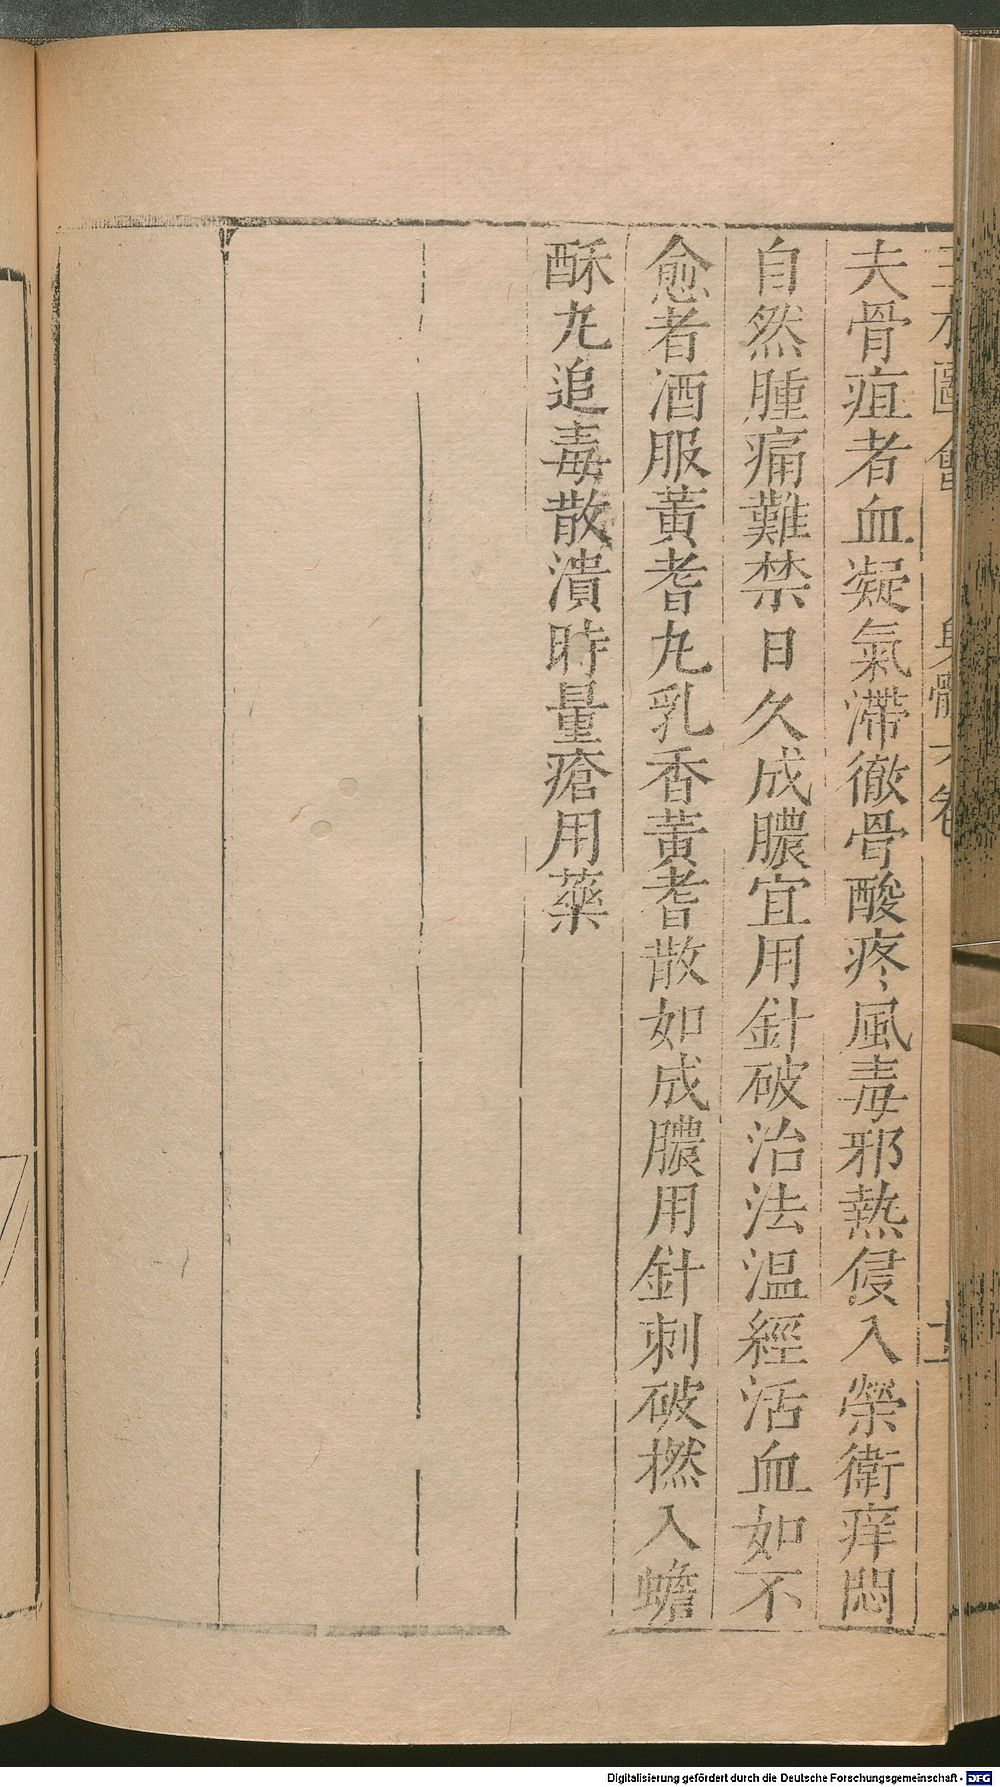 三才圖會 身體六卷 十
夫骨疽者血凝氣滯徹骨酸疼風毒邪熱侵入榮衛痒悶
自然腫痛難禁日久成膿宜用針破治法溫經活血如不
愈者酒服黃耆丸乳香黃耆散如成膿用針刺破撚入蟾
酥丸追毒散潰時量瘡用藥
Digitalisierung gefördert durch die Deutsche Forschungsgemeinschaft - DFG